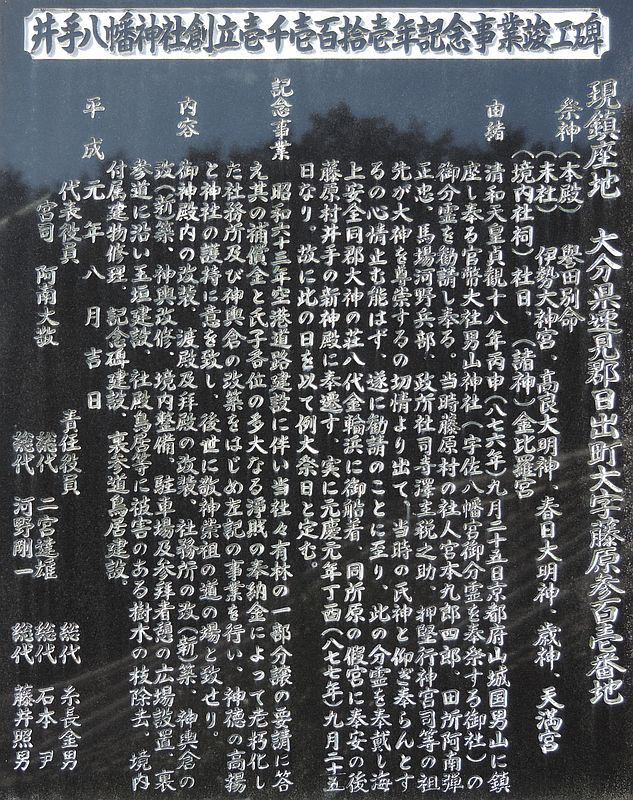 井手八幡神社創立壱千壱百拾壱年記念事業竣工碑
現鎮座地 大分県速見郡日出町大字藤原参百壱番地
祭神 (本殿) 譽田別命
(末社) 伊勢大神宮、高良大明神、春日大明神、歳神、天満宮
(境内社祠) 社日、(諸神) 金比羅宮
由緒 清和天皇貞観十八年丙申(八七六年)九月二十五日京都府山城国男山に鎮
座し奉る官幣大社男山神社(宇佐八幡宮御分霊を奉祭する御社)の
御分霊を勧請し奉る。当時藤原村の社人宮本九郎四郎、田所阿南弾
正忠、馬場河野兵部、政所社司寺澤主税之助、押堅行神宮司等の祖
先が大神を尊崇するの切情より出て、当時の氏神と仰ぎ奉らんとす
るの心情止む能はず、遂に勧請のことに至り、此の分霊を奉戴し海
上安全同郡大神の荘八代金輪浜に御船着、同所原の假宮に奉安の後
藤原村井手の新神殿に奉遷す。実に元慶元年丁酉(八七七年)九月二十五
日なり。故に此の日を以て例大祭日と定む。
記念事業 昭和六十三年空港道路建設に伴い当社々有林の一部分譲の要請に答
え其の補償金と氏子各位の多大なる浄財の奉納金によって老朽化し
た社務所及び神輿倉の改築をはじめ左記の事業を行い、神徳の高揚
と神社の護持に意を致し、後世に敬神崇祖の道の場と致せり。
内容 御神殿内の改装、渡殿及拝殿の改装、社務所の改(新)築、神輿倉の
改(新)築、神輿改修、境内整備、駐車場及参拝者憩の広場設置、裏
参道に沿い玉垣建設、社殿鳥居等に被害のある樹木の枝除去、境内
付属建物修理、記念碑建設、裏参道鳥居建設
平成元年八月吉日
代表役員 責任役員
宮司 阿南大哉 総代 二宮達雄 総代 糸長金男
総代 石本尹
総代 河野剛一 総代 藤井照男